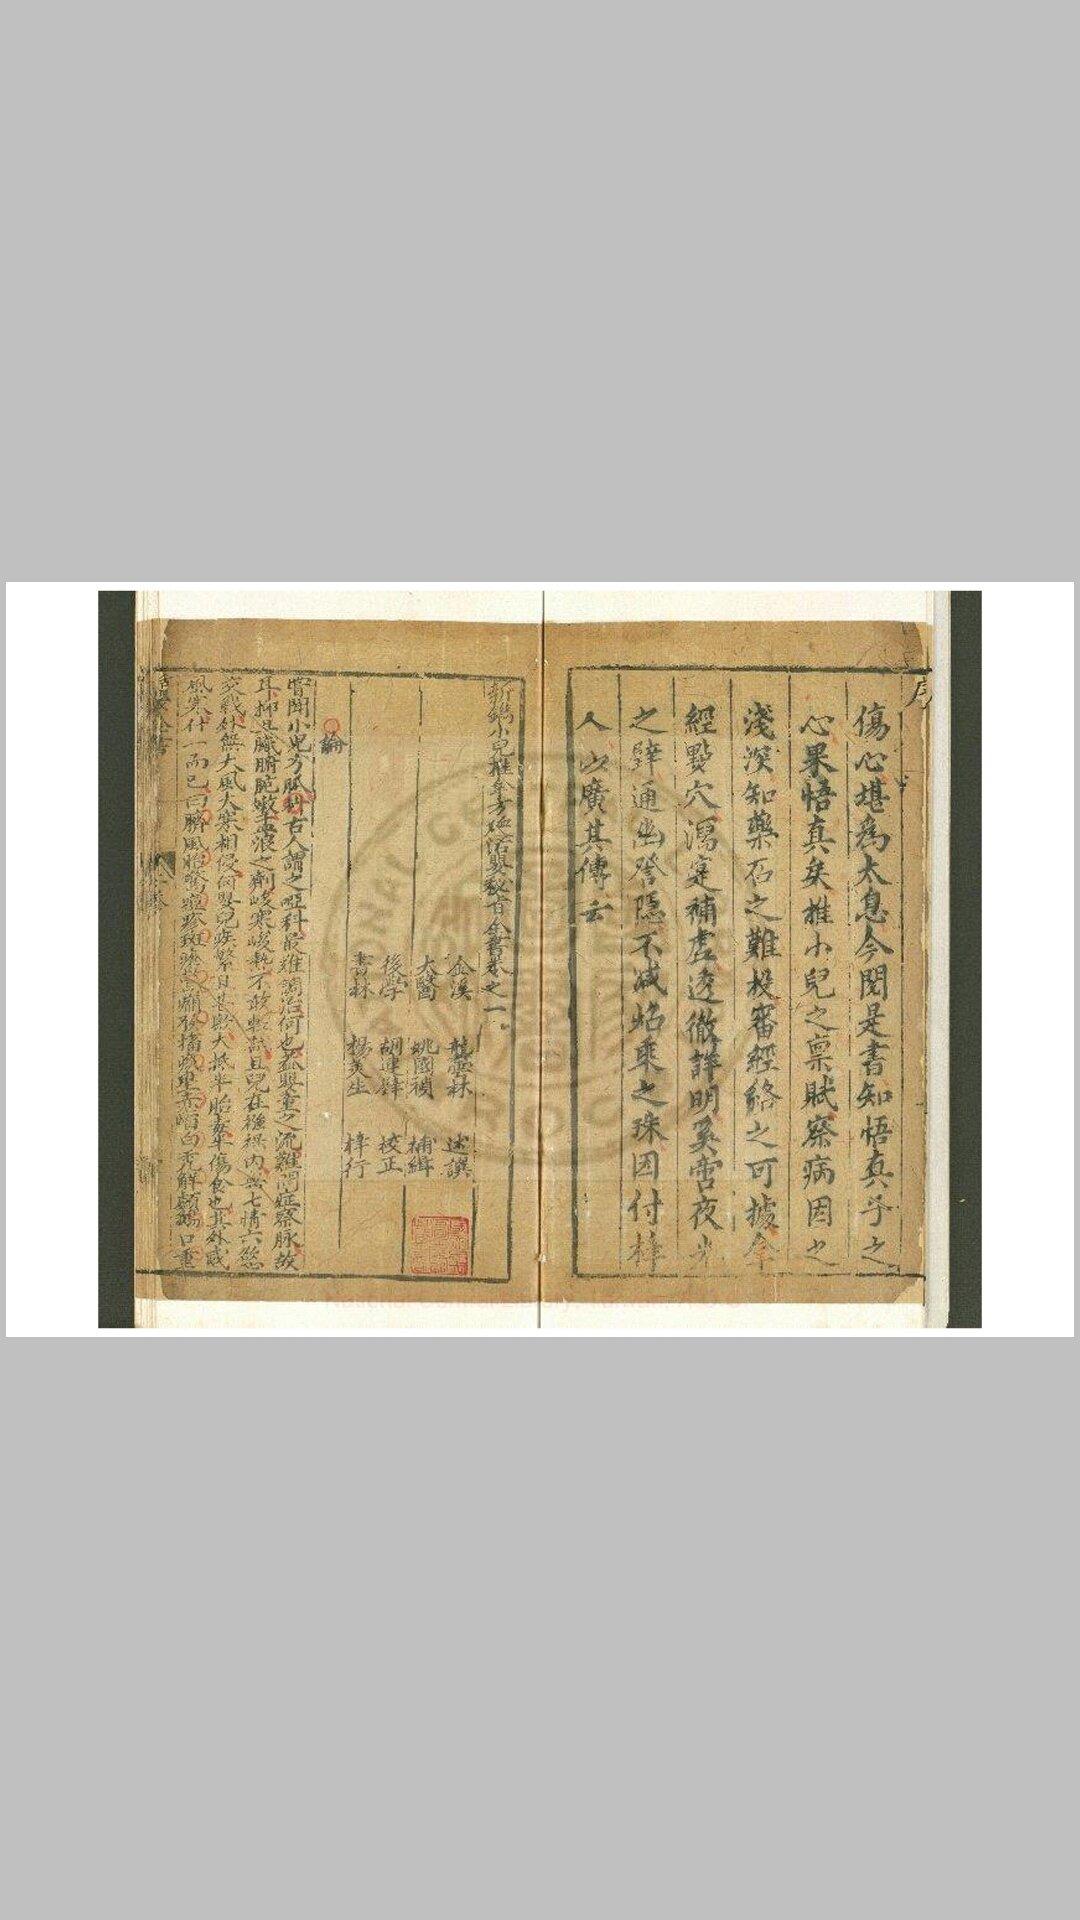 序
傷心堪為太息今閱是書知悟真子之
心果悟真矣推小兒之禀賦察病因之
淺深知藥石之難投審經絡之可據拿
經點穴瀉寔補虛透徹詳明奚啻夜光
之璧通幽發隱不減炤乘之珠因付梓
人以廣其傳云
新鐫小兒推拿方脉活嬰秘旨全書卷之一
金溪 龔雲林 述譔
太醫 姚國禎 補緝
後學 胡連璧 校正
書林 楊美生 梓行
論
嘗聞小兒方脉科古人謂之啞科最難調治何也盖嬰童之流難問症察脉故
耳抑且臟腑脆嫩孟浪之劑峻寒峻熱不敢輕試且兒在襁褓內無七情六慾
交戰外無大風大寒相侵何嬰兒疾繁且甚歟大抵半胎毒半傷食也其外感
風寒什一而已曰臍風胎驚